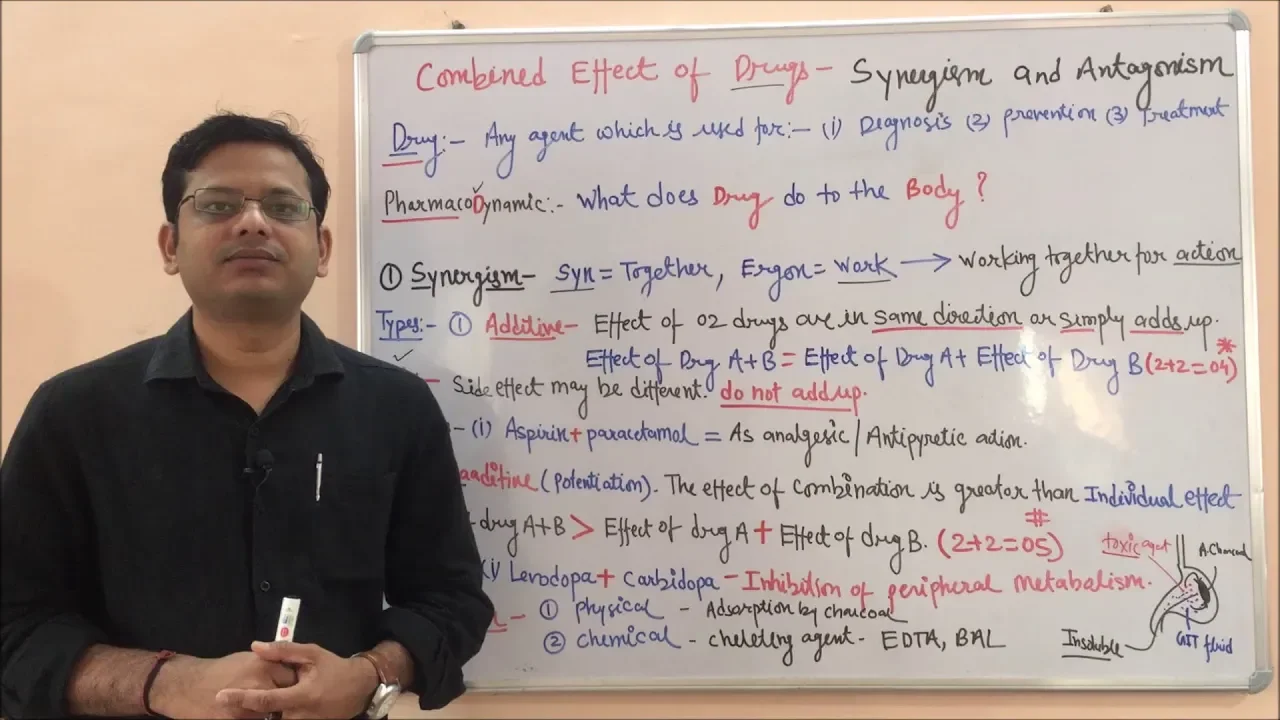 Combined Effect of Drugs - Synergism and Antagonism
Drug:- Any agent which is used for:- (i) Diagnosis (2) prevention (3) Treatment
PharmacoDynamic:- What does Drug do to the Body ?
① Synergism- Syn = Together, Ergon = Work → Working together for action
Types:- ① Additive- Effect of 02 drugs are in same direction or simply adds up.
Effect of Drg A+B = Effect of Drug A + Effect of Drug B (2+2=04)*
- Side effect may be different. do not add up.
- (i) Aspirin + paracetamol = As analgesic / Antipyretic action.
(Potentiation). The effect of Combination is greater than Individual effect
drug A+B > Effect of drug A + Effect of drug B. (2+2=05) #
(i) Levodopa + Carbidopa - Inhibition of peripheral metabolism.
① physical - Adsorption by charcoal
② chemical - cheleting agent - EDTA, BAL
toxic aget
A.Charcoal
Insoluble
GIT fluid